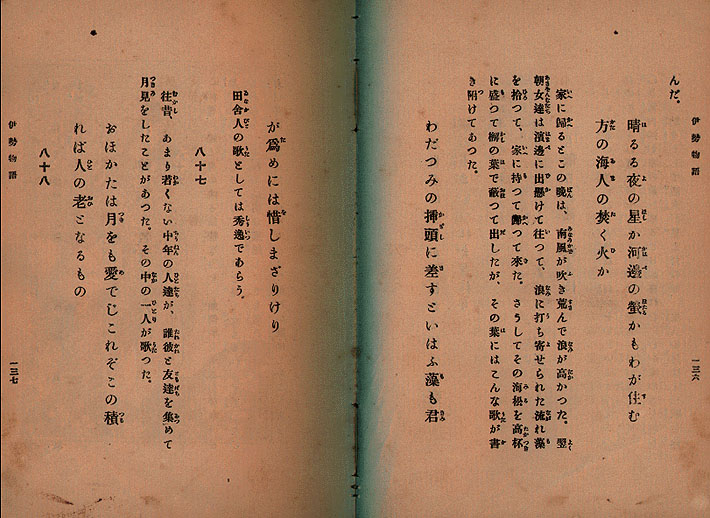 伊勢物語
一三六
んだ。
晴るる夜の星か河邊の螢かもわが住む
方の海人の焚く火か
家に歸るとこの晩は、南風が吹き荒んで浪が高かつた。翌
朝女達は濱邊に出懸けて往つて、浪に打ち寄せられた流れ藻
を拾つて、家に持つて歸つて來た。さうしてその海松を高杯
に盛つて槲の葉で蔽つて出したが、その葉にはこんな歌が書
き附けてあつた。
わだつみの挿頭に差すといはふ藻も君
が爲めには惜しまざりけり
田舍人の歌としては秀逸であらう。
八十七
往昔、あまり若くない中年の人達が、誰彼と友達を集めて
月見をしたことがあつた。その中の一人が歌つた。
おほかたは月をも愛でじこれぞこの積
れば人の老となるもの
八十八
伊勢物語
一三七